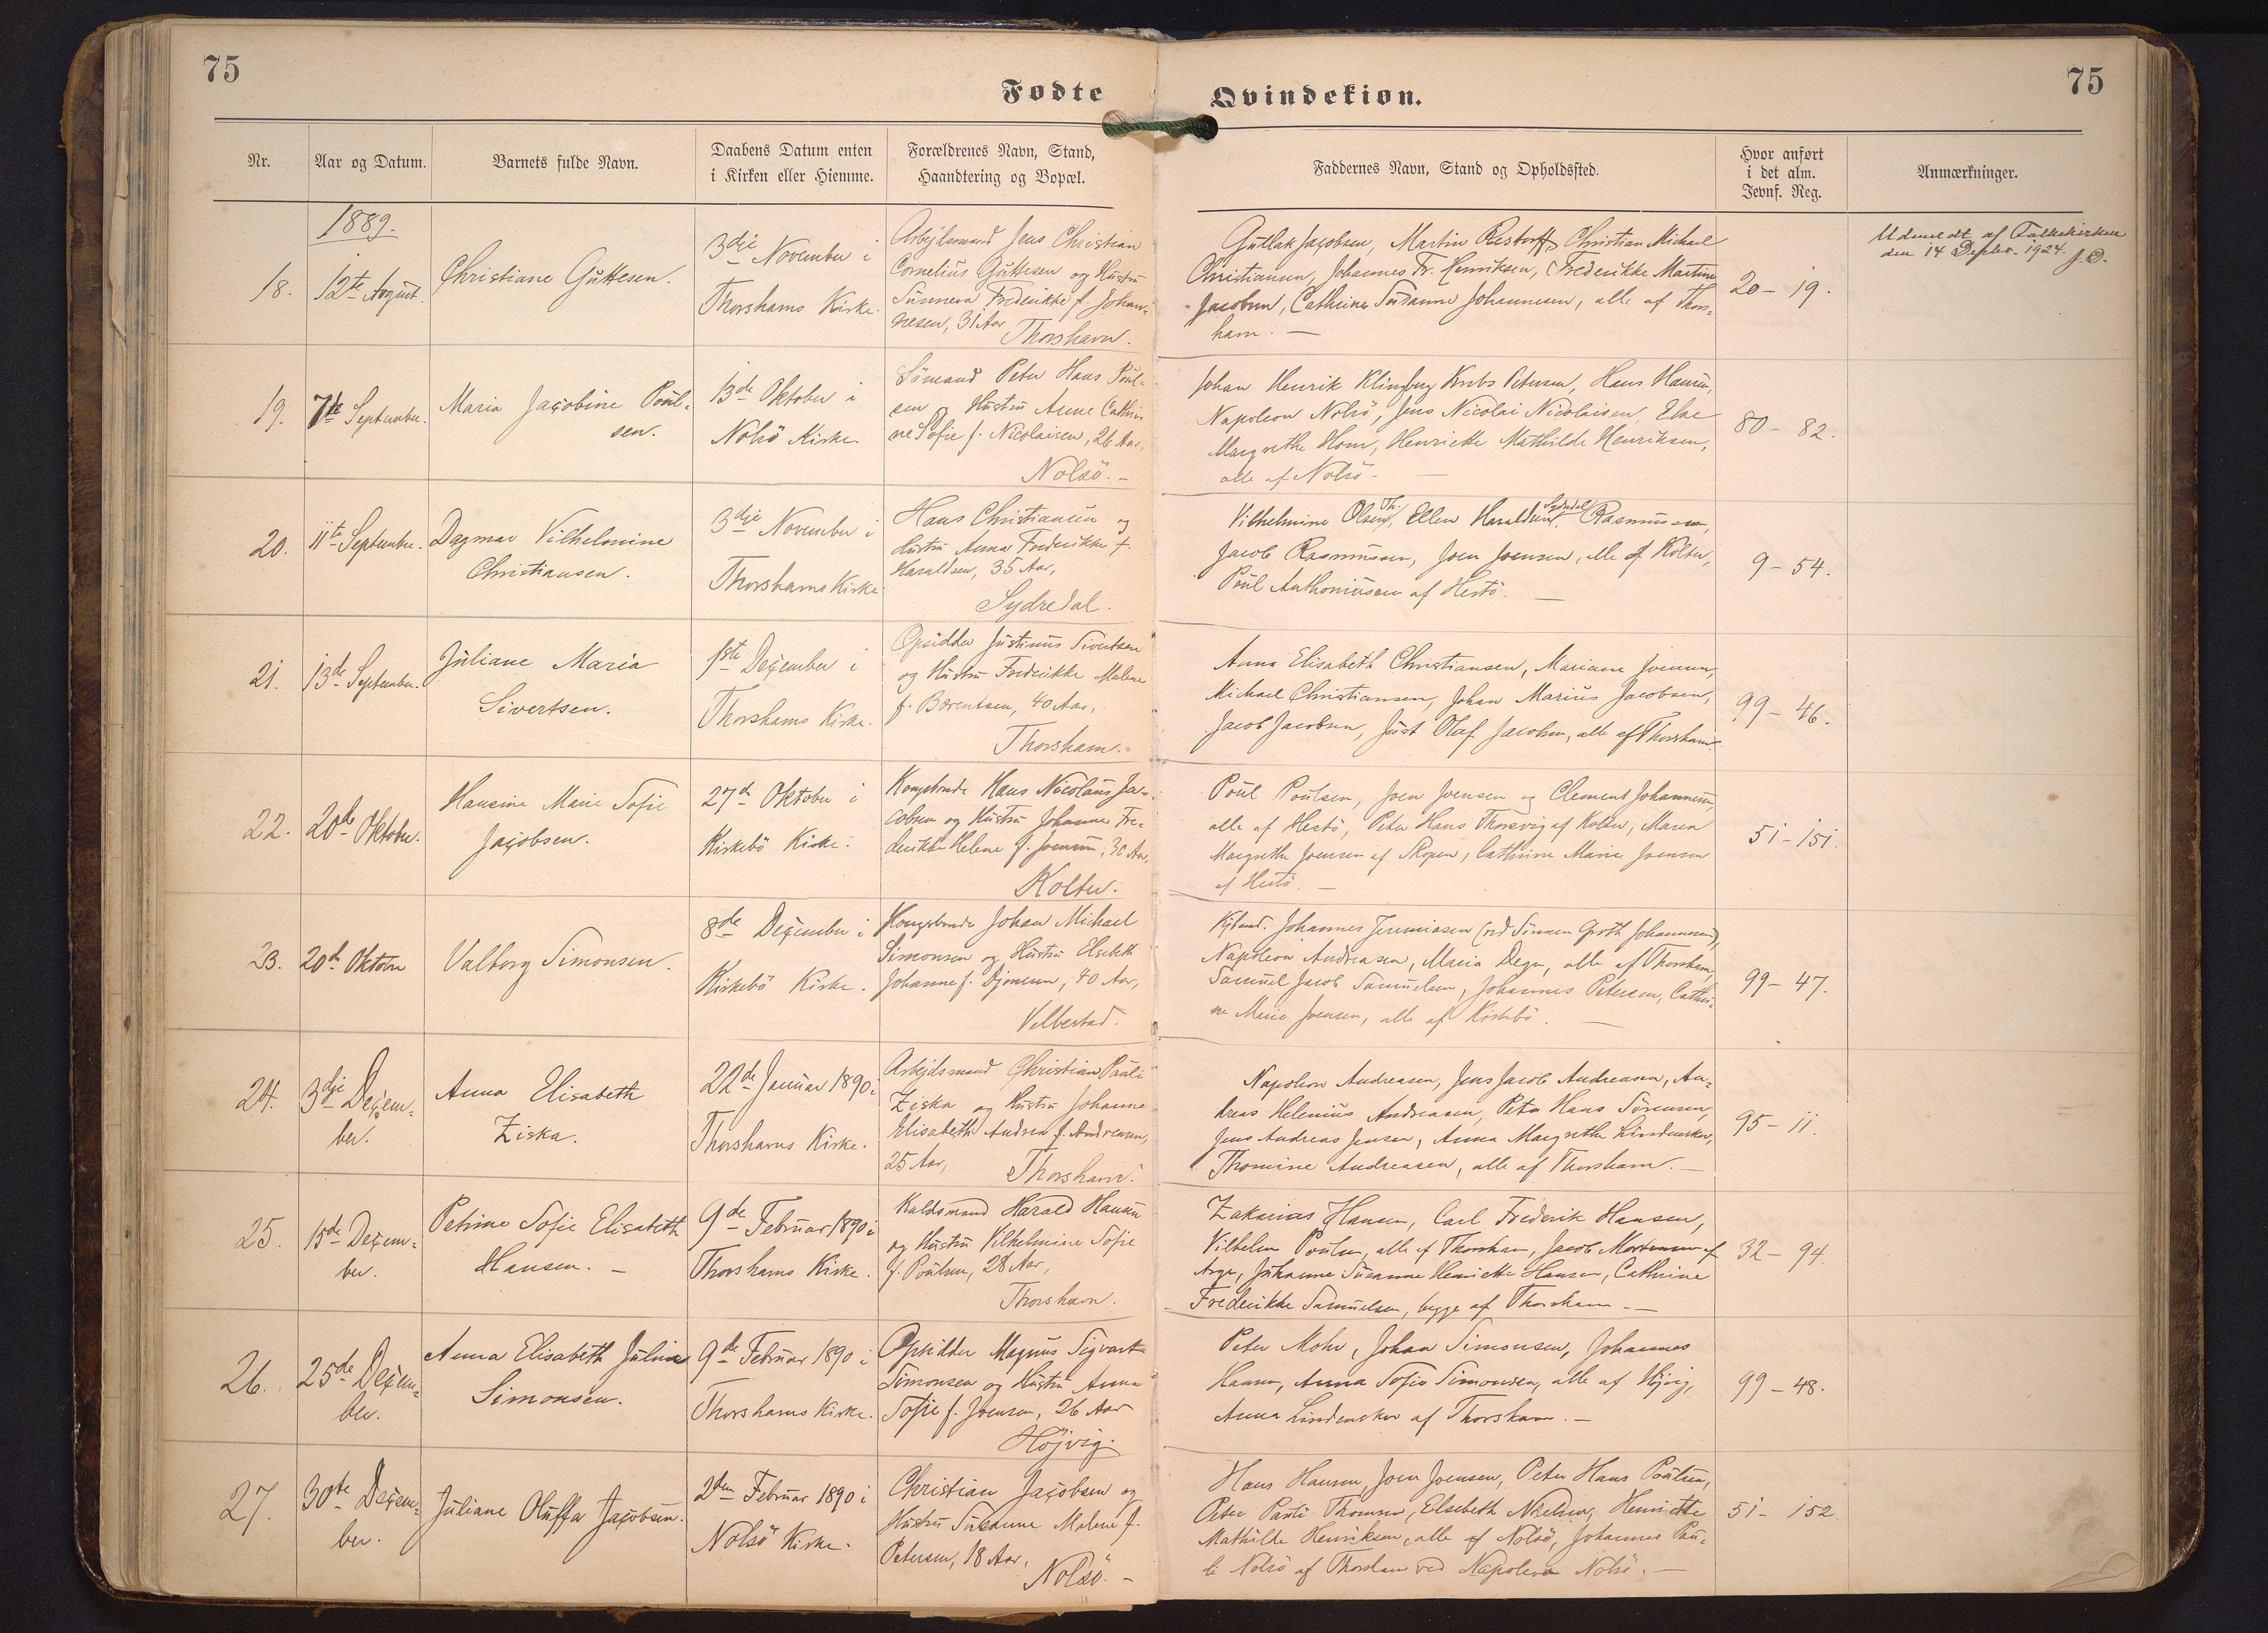 75
75
Fødte
Qvindekiøn.
Nr.
Aar og Datum.
Barnets fulde Navn.
Daabens Datum enten
i Kirken eller Hiemme.
Forældrenes Navn, Stand,
Haandtering og Bopæl.
Faddernes Navn, Stand og Opholdssted.
Hvor anført
i det alm.
Jevnf. Reg.
Anmærkninger.
1889.
18.
12te August.
Christiane Guttesen.
3die November i
Thorshavns Kirke.
Arbejdsmand Jens Christian
Cornelius Guttesen og Hustru
Sunneva Frederikke f. Johan-
nesen, 31 Aar
Thorshavn.
Gutlak Jacobsen, Martin Restorff, Christian Michael
Christiansen, Johannes Fr. Henriksen, Frederikke Martine
Jacobsen, Cathrine Susanne Johannesen, alle af Thors-
havn. —
20 - 19.
Udmeldt af Folkekirken
den 14 Septbr. 1924. J.D.
19.
7de September.
Maria Jacobine Poul-
sen.
13de Oktober i
Nolsö Kirke
Sömand Peter Hans Poul-
sen og Hustru Anne Cathri-
ne Sofie f. Nicolaisen, 26 Aar,
Nolsö. -
Johan Henrik Klingberg Krebs Petersen, Hans Hansen,
Napoleon Nolsö, Jens Nicolai Nicolaisen, Else
Margrethe Hom, Henriette Mathilde Henriksen,
alle af Nolsö -
80 - 82.
20.
11te September.
Dagmar Vilhelmine
Christiansen.
3die November i
Thorshavns Kirke
Hans Christiansen og
Hustru Anna Frederikke f.
Haraldsen, 35 Aar,
Sydredal.
Vilhelmine Olsen, Th. Ellen Haraldsen, Sydredal Rasmussen,
Jacob Rasmussen, Joen Joensen, alle af Kolter,
Poul Anthoniussen af Hestö. —
9 - 54.
21.
13de September.
Juliane Maria
Sivertsen.
1ste December i
Thorshavns Kirke.
Opsidder Justinus Sivertsen
og Hustru Frederikke Malene
f. Berentsen, 40 Aar,
Thorshavn.
Anna Elisabeth Christiansen, Mariane Joensen,
Michael Christiansen, Johan Marius Jacobsen,
Jacob Jacobsen, Just Olaf Jacobsen, alle af Thorshavn.
99 - 46.
22.
20de Oktober.
Hansine Marie Sofie
Jacobsen.
27de Oktober i
Kirkebö Kirke.
Kongsbonde Hans Nicolaus Ja-
cobsen og Hustru Johanne Fre-
derikke Helene f. Joensen, 30 Aar,
Kolter.
Poul Poulsen, Joen Joensen og Clement Johannesen,
alle af Hestö, Peter Hans Thorsvig af Kolter, Maren
Margrethe Joensen af Skopen, Cathrine Marie Joensen
af Hestö. —
51 - 151.
23.
20de Oktober
Valborg Simonsen.
8de December i
Kirkebö Kirke.
Kongsbonde Johan Michael
Simonsen og Hustru Elsebeth
Johanne f. Djonesen, 40 Aar,
Velbestad.
Kjbmd. Johannes Jeremiasen (ved Sönnen Groth Johannesen),
Napoleon Andreasen, Maria Degn, alle af Thorshavn,
Samuel Jacob Samuelsen, Johannes Petersen, Cathri-
ne Marie Joensen, alle af Kirkebö. —
99 - 47.
24.
3die Decem-
ber.
Anna Elisabeth
Ziska.
22de Januar 1890 i
Thorshavns Kirke.
Arbejdsmand Christian Pauli
Ziska og Hustru Johanne
Elisabeth Andrea f. Andreasen,
25 Aar,
Thorshavn.
Napoleon Andreasen, Jens Jacob Andreasen, An-
dreas Helenius Andreasen, Peter Hans Sörensen,
Jens Andreas Jensen, Anna Margrethe Lindenskov,
Thomine Andreasen, alle af Thorshavn. —
95 - 11.
25.
15de Decem-
ber.
Petrine Sofie Elisabeth
Hansen. -
9de Februar 1890 i
Thorshavns Kirke.
Kuldsmand Harald Hansen
og Hustru Vilhelmine Sofie
f. Poulsen, 28 Aar,
Thorshavn.
Zakarias Hansen, Carl Frederik Hansen,
Vilhelm Poulsen, alle af Thorshavn, Jacob Mortensen af
Arge, Johanne Susanne Henriette Hansen, Cathrine
Frederikke Samuelsen, begge af Thorshavn. —
32 - 94.
26.
25de Decem-
ber.
Anna Elisabeth Juline
Simonsen.
9de Februar 1890 i
Thorshavns Kirke.
Opsidder Magnus Sigvart
Simonsen og Hustru Anna
Sofie f. Joensen, 26 Aar
Höjvig.
Peter Mohr, Johan Simonsen, Johannes
Hansen, Anna Sofie Simonsen, alle af Höjvig,
Anna Lindenskov af Thorshavn. —
99 - 48.
27.
30te Decem-
ber.
Juliane Oluffa Jacobsen.
2den Februar 1890 i
Nolsö Kirke.
Christian Jacobsen og
Hustru Susanne Malene f.
Petersen, 18 Aar,
Nolsö. -
Hans Hansen, Joen Joensen, Peter Hans Poulsen,
Peter Pauli Thomsen, Elsebeth Nielsen, Henriette
Mathilde Henriksen, alle af Nolsö, Johannes Pau-
li Nolsö af Thorshavn ved Napoleon Nolsö. —
51 - 152.